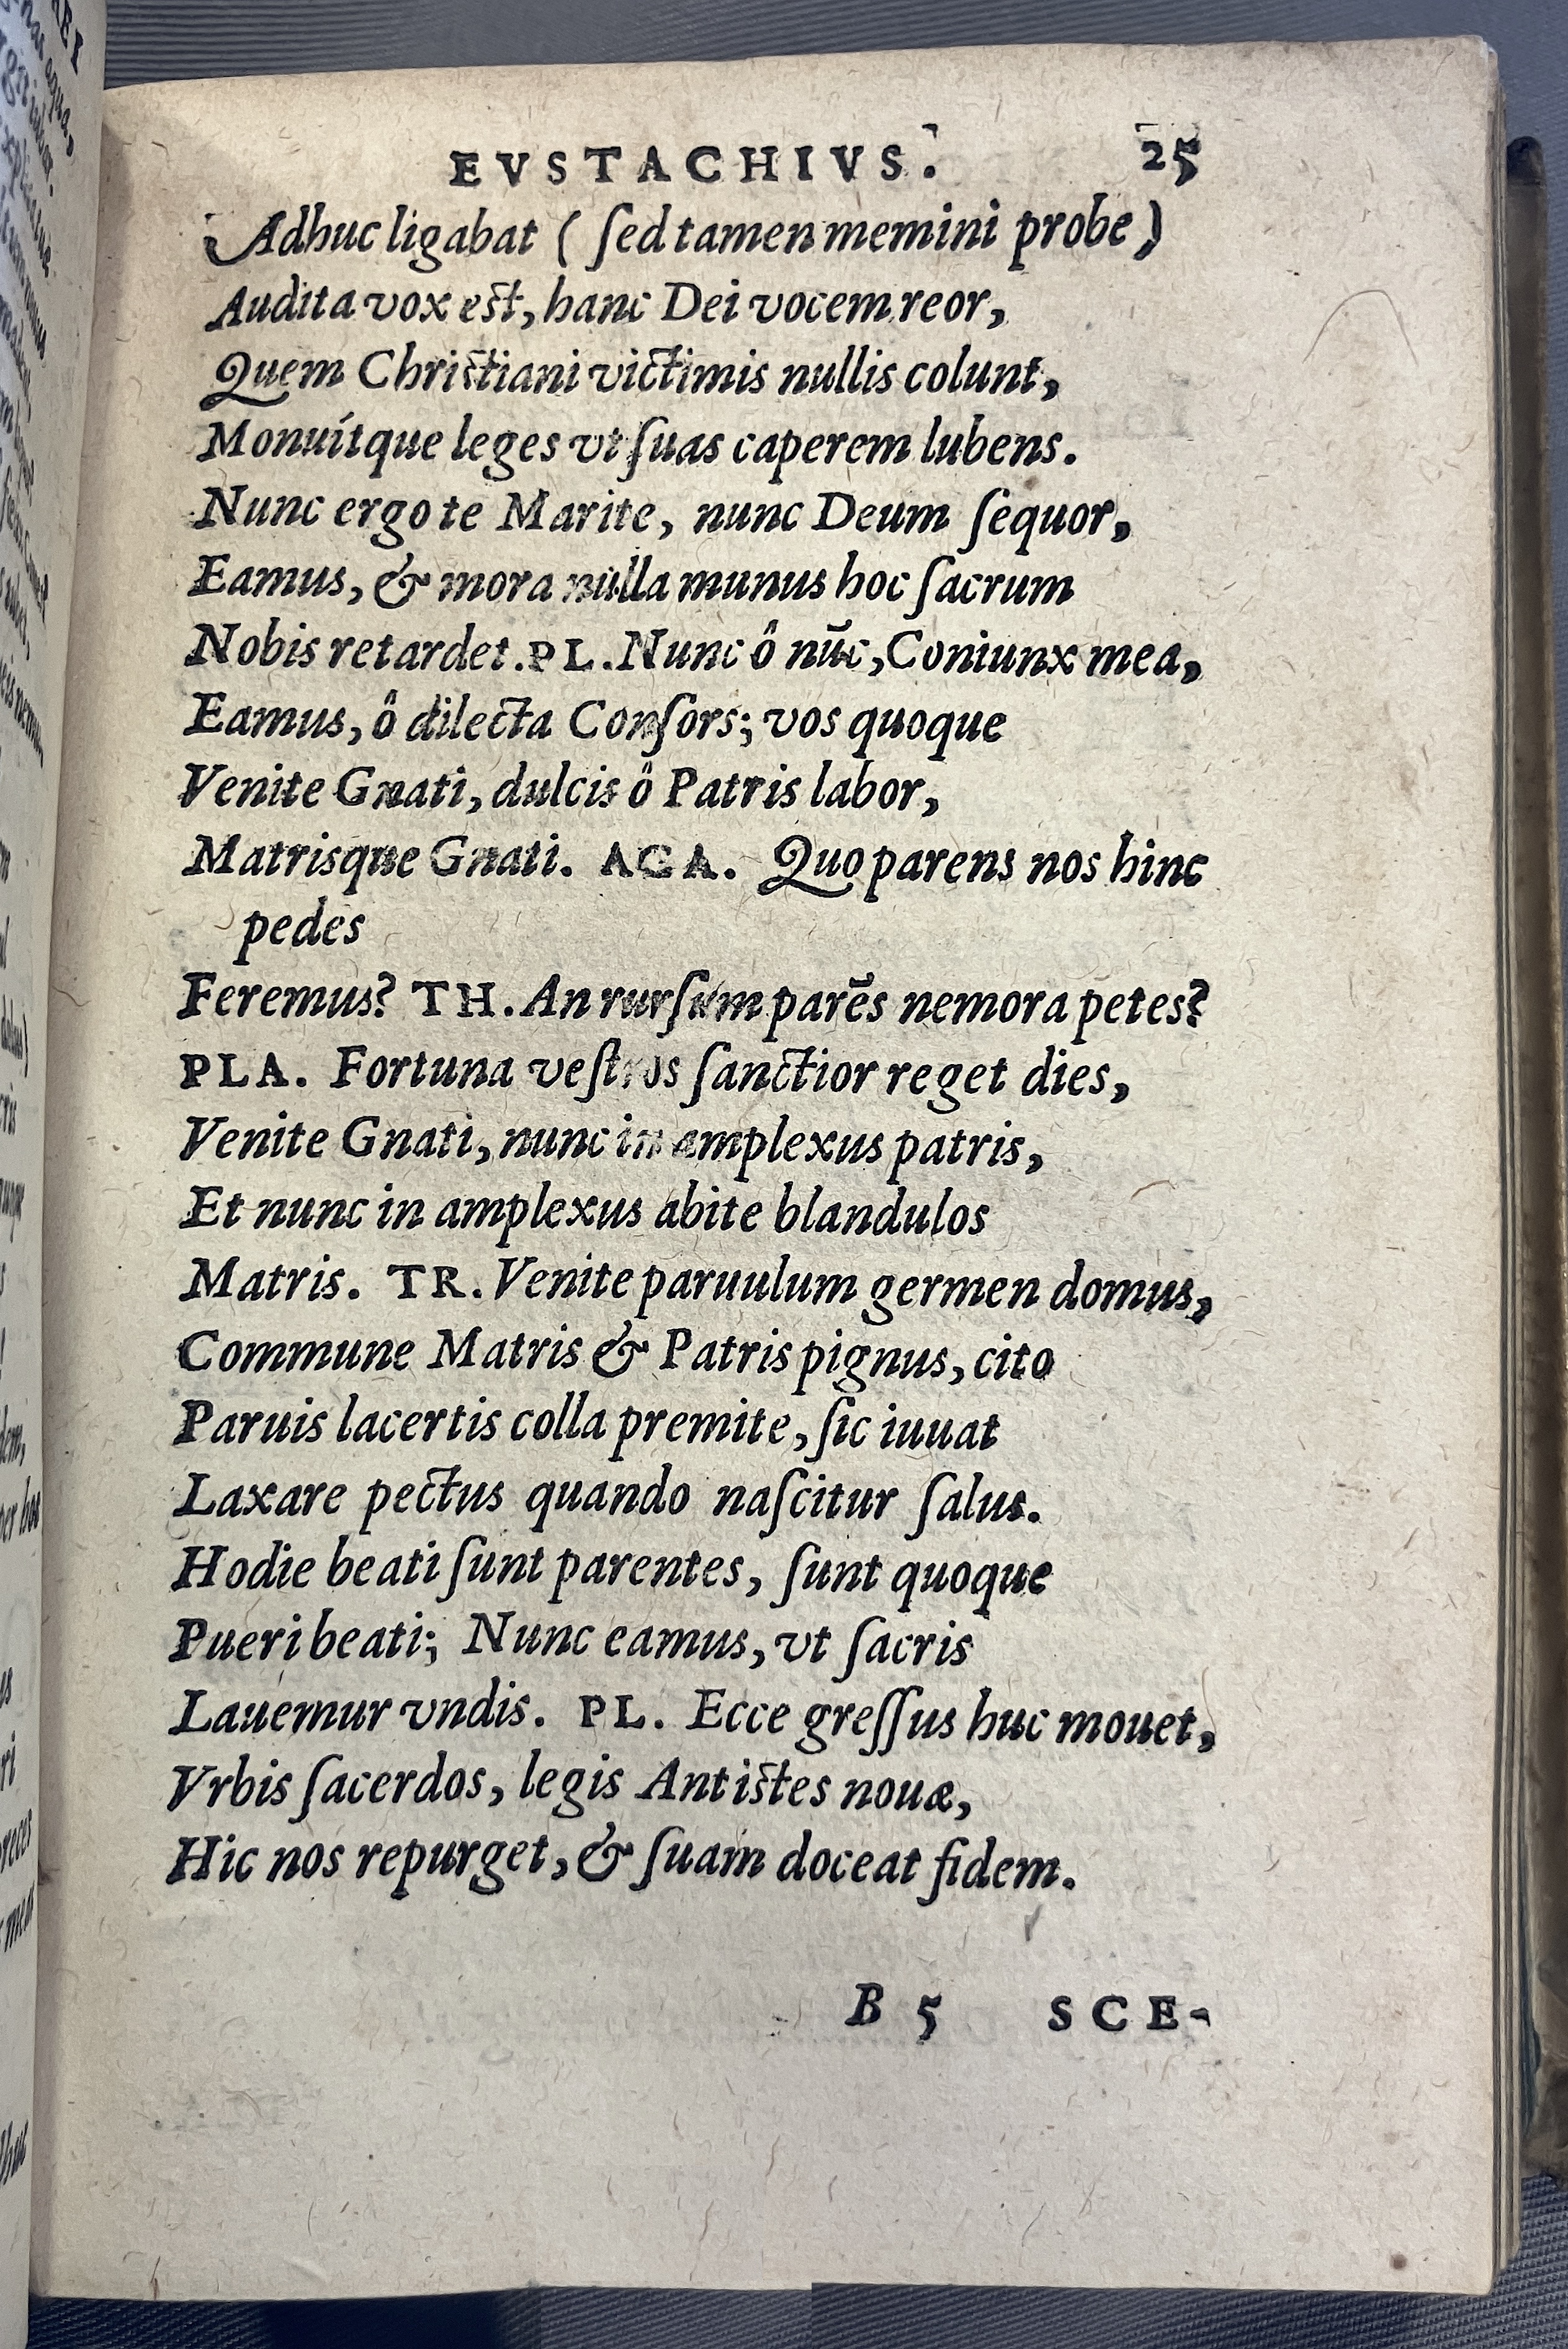 EVSTACHIVS. 25
Adhuc ligabat ( ſed tamen memini probe )
Audita vox eſt, hanc Dei vocem reor,
Quem Chriſtiani victimis nullis colunt,
Monuítque leges vt ſuas caperem lubens.
Nunc ergo te Marite, nunc Deum ſequor,
Eamus, & mora nulla munus hoc ſacrum
Nobis retardet. PL. Nunc ô nūc, Coniunx mea,
Eamus, ô dilecta Conſors; vos quoque
Venite Gnati, dulcis ô Patris labor,
Matrisque Gnati. AGA. Quo parens nos hinc
pedes
Feremus? TH. An rurſum parēs nemora petes?
PLA. Fortuna veſtros ſanctior reget dies,
Venite Gnati, nunc in amplexus patris,
Et nunc in amplexus abite blandulos
Matris. TR. Venite paruulum germen domus,
Commune Matris & Patris pignus, cito
Paruis lacertis colla premite, ſic iuuat
Laxare pectus quando naſcitur ſalus.
Hodie beati ſunt parentes, ſunt quoque
Pueri beati; Nunc eamus, vt ſacris
Lauemur vndis. PL. Ecce greſſus huc mouet,
Vrbis ſacerdos, legis Antiſtes nouæ,
Hic nos repurget, & ſuam doceat fidem.
B 5 SCE-